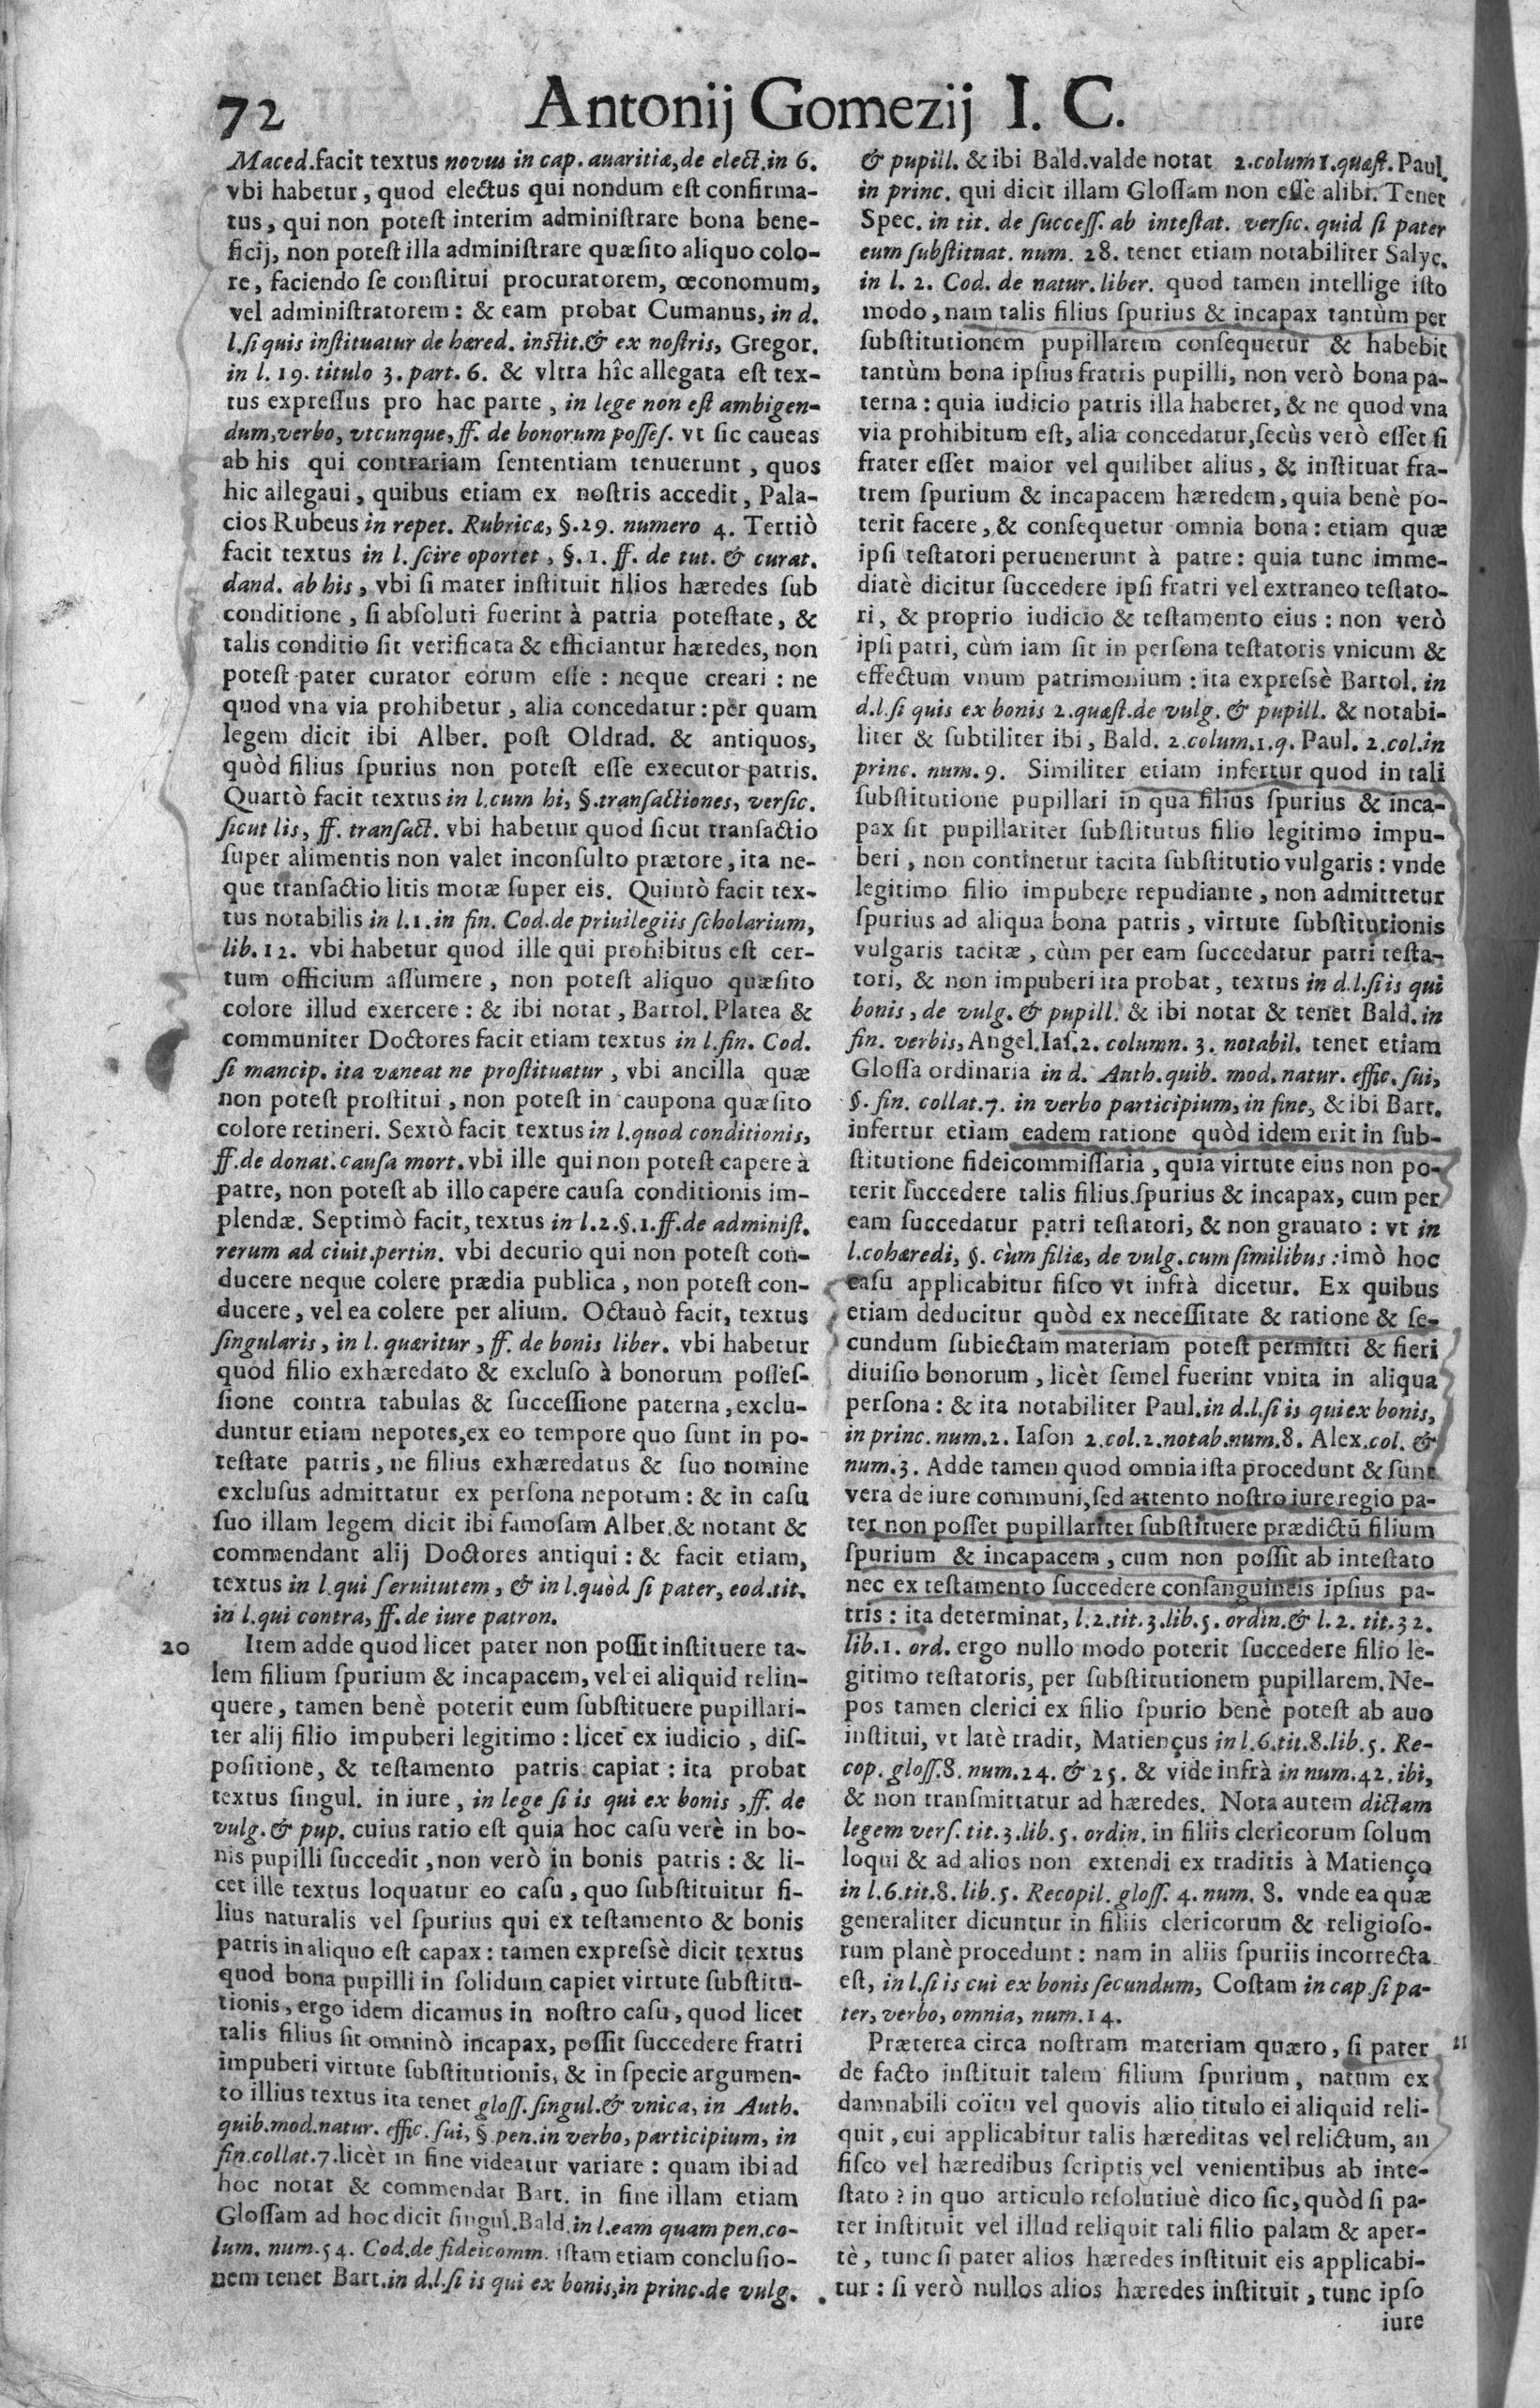 72 Antonij Gomezij I. C.
Maced. facit textus novus in cap. auaritiæ, de elect. in 6.
vbi habetur, quod electus qui nondum est confirma-
tus, qui non potest interim administrare bona bene-
ficij, non potest illa administrare quæsito aliquo colo-
re, faciendo se constitui procuratorem, œconomum,
vel administratorem: & eam probat Cumanus, in d.
l. si quis instituatur de hæred. instit. & ex nostris, Gregor.
in l. 19. titulo 3. part. 6. & vltra hîc allegata est tex-
tus expressus pro hac parte, in lege non est ambigen-
dum, verbo, vtcunque, ff. de bonorum posses. vt sic caueas
ab his qui contrariam sententiam tenuerunt, quos
hic allegaui, quibus etiam ex nostris accedit, Pala-
cios Rubeus in repet. Rubricæ, §. 29. numero 4. Tertiò
facit textus in l. scire oportet, §. 1. ff. de tut. & curat.
dand. ab his, vbi si mater instituit filios hæredes sub
conditione, si absoluti fuerint à patria potestate, &
talis conditio sit verificata & efficiantur hæredes, non
potest pater curator eorum esse: neque creari: ne
quod vna via prohibetur, alia concedatur: per quam
legem dicit ibi Alber. post Oldrad. & antiquos,
quòd filius spurius non potest esse executor patris.
Quartò facit textus in l. cum hi, §. transactiones, versic.
sicut lis, ff. transact. vbi habetur quod sicut transactio
super alimentis non valet inconsulto prætore, ita ne-
que transactio litis motæ super eis. Quintò facit tex-
tus notabilis in l. 1. in fin. Cod. de priuilegiis scholarium,
lib. 12. vbi habetur quod ille qui prohibitus est cer-
tum officium assumere, non potest aliquo quæsito
colore illud exercere: & ibi notat, Bartol. Platea &
communiter Doctores facit etiam textus in l. fin. Cod.
si mancip. ita væneat ne prostituatur, vbi ancilla quæ
non potest prostitui, non potest in caupona quæsito
colore retineri. Sextò facit textus in l. quod conditionis,
ff. de donat. causa mort. vbi ille qui non potest capere à
patre, non potest ab illo capere causa conditionis im-
plendæ. Septimò facit, textus in l. 2. §. 1. ff. de administ.
rerum ad ciuit. pertin. vbi decurio qui non potest con-
ducere neque colere prædia publica, non potest con-
ducere, vel ea colere per alium. Octauò facit, textus
singularis, in l. quæritur, ff. de bonis liber. vbi habetur
quod filio exhæredato & excluso à bonorum posses-
sione contra tabulas & successione paterna, exclu-
duntur etiam nepotes, ex eo tempore quo sunt in po-
testate patris, ne filius exhæredatus & suo nomine
exclusus admittatur ex persona nepotum: & in casu
suo illam legem dicit ibi famosam Alber. & notant &
commendant alij Doctores antiqui: & facit etiam,
textus in l. qui seruitutem, & in l. quòd si pater, eod. tit.
in l. qui contra, ff. de iure patron.
20 Item adde quod licet pater non possit instituere ta-
lem filium spurium & incapacem, vel ei aliquid relin-
quere, tamen benè poterit eum substituere pupillari-
ter alij filio impuberi legitimo: licet ex iudicio, dis-
positione, & testamento patris capiat: ita probat
textus singul. in iure, in lege si is qui ex bonis, ff. de
vulg. & pup. cuius ratio est quia hoc casu verè in bo-
nis pupilli succedit, non verò in bonis patris: & li-
cet ille textus loquatur eo casu, quo substituitur fi-
lius naturalis vel spurius qui ex testamento & bonis
patris in aliquo est capax: tamen expressè dicit textus
quod bona pupilli in solidum capiet virtute substitu-
tionis, ergo idem dicamus in nostro casu, quod licet
talis filius sit omninò incapax, possit succedere fratri
impuberi virtute substitutionis, & in specie argumen-
to illius textus ita tenet gloss. singul. & vnica, in Auth.
quib. mod. natur. effic. sui, § pen. in verbo, participium, in
fin. collat. 7. licèt in fine videatur variare: quam ibi ad
hoc notat & commendat Bart. in fine illam etiam
Glossam ad hoc dicit singul. Bald. in l. eam quam pen. co-
lum. num. 54. Cod. de fideicomm. istam etiam conclusio-
nem tenet Bart. in d. l. si is qui ex bonis, in princ. de vulg.
& pupill. & ibi Bald. valde notat 2. colum 1. quæst. Paul.
in princ. qui dicit illam Glossam non esse alibi. Tenet
Spec. in tit. de success. ab intestat. versic. quid si pater
eum substituat. num. 28. tenet etiam notabiliter Salyc.
in l. 2. Cod. de natur. liber. quod tamen intellige isto
modo, nam talis filius spurius & incapax tantùm per
substitutionem pupillarem consequetur & habebit
tantùm bona ipsius fratris pupilli, non verò bona pa-
terna: quia iudicio patris illa haberet, & ne quod vna
via prohibitum est, alia concedatur, secùs verò esset si
frater esset maior vel quilibet alius, & instituat fra-
trem spurium & incapacem hæredem, quia benè po-
terit facere, & consequetur omnia bona: etiam quæ
ipsi testatori peruenerunt à patre: quia tunc imme-
diatè dicitur succedere ipsi fratri vel extraneo testato-
ri, & proprio iudicio & testamento eius: non verò
ipsi patri, cùm iam sit in persona testatoris vnicum &
effectum vnum patrimonium: ita expressè Bartol. in
d. l. si quis ex bonis 2. quæst. de vulg. & pupill. & notabi-
liter & subtiliter ibi, Bald. 2. colum. 1. q. Paul. 2. col. in
princ. num. 9. Similiter etiam infertur quod in tali
substitutione pupillari in qua filius spurius & inca-
pax sit pupillariter substitutus filio legitimo impu-
beri, non continetur tacita substitutio vulgaris: vnde
legitimo filio impubere repudiante, non admittetur
spurius ad aliqua bona patris, virtute substitutionis
vulgaris tacitæ, cùm per eam succedatur patri testa-
tori, & non impuberi ita probat, textus in d. l. si is qui
bonis, de vulg. & pupill. & ibi notat & tenet Bald. in
fin. verbis, Angel. Ias. 2. column. 3. notabil. tenet etiam
Glossa ordinaria in d. Auth. quib. mod. natur. effic. sui,
§. fin. collat. 7. in verbo participium, in fine, & ibi Bart.
infertur etiam eadem ratione quòd idem erit in sub-
stitutione fideicommissaria, quia virtute eius non po-
terit succedere talis filius spurius & incapax, cum per
eam succedatur patri testatori, & non grauato: vt in
l. cohæredi, §. cùm filiæ, de vulg. cum similibus: imò hoc
casu applicabitur fisco vt infrà dicetur. Ex quibus
etiam deducitur quòd ex necessitate & ratione & se-
cundum subiectam materiam potest permitti & fieri
diuisio bonorum, licèt semel fuerint vnita in aliqua
persona: & ita notabiliter Paul. in d. l. si is qui ex bonis,
in princ. num. 2. Iason 2. col. 2. notab. num. 8. Alex. col. &
num. 3. Adde tamen quod omnia ista procedunt & sunt
vera de iure communi, sed attento nostro iure regio pa-
ter non posset pupillariter substituere prædictū filium
spurium & incapacem, cum non possit ab intestato
nec ex testamento succedere consanguineis ipsius pa-
tris: ita determinat, l. 2. tit. 3. lib. 5. ordin. & l. 2. tit. 32.
lib. 1. ord. ergo nullo modo poterit succedere filio le-
gitimo testatoris, per substitutionem pupillarem. Ne-
pos tamen clerici ex filio spurio benè potest ab auo
institui, vt latè tradit, Matiençus in l. 6. tit. 8. lib. 5. Re-
cop. gloss. 8. num. 24. & 25. & vide infrà in num. 42. ibi,
& non transmittatur ad hæredes. Nota autem dictam
legem vers. tit. 3. lib. 5. ordin. in filiis clericorum solum
loqui & ad alios non extendi ex traditis à Matienço
in l. 6. tit. 8. lib. 5. Recopil. gloss. 4. num. 8. vnde ea quæ
generaliter dicuntur in filiis clericorum & religioso-
rum planè procedunt: nam in aliis spuriis incorrecta
est, in l. si is cui ex bonis secundum, Costam in cap. si pa-
ter, verbo, omnia, num. 14.
Præterea circa nostram materiam quæro, si pater 21
de facto instituit talem filium spurium, natum ex
damnabili coïtu vel quovis alio titulo ei aliquid reli-
quit, cui applicabitur talis hæreditas vel relictum, an
fisco vel hæredibus scriptis vel venientibus ab inte-
stato? in quo articulo resolutiuè dico sic, quòd si pa-
ter instituit vel illud reliquit tali filio palam & aper-
tè, tunc si pater alios hæredes instituit eis applicabi-
tur: si verò nullos alios hæredes instituit, tunc ipso
iure